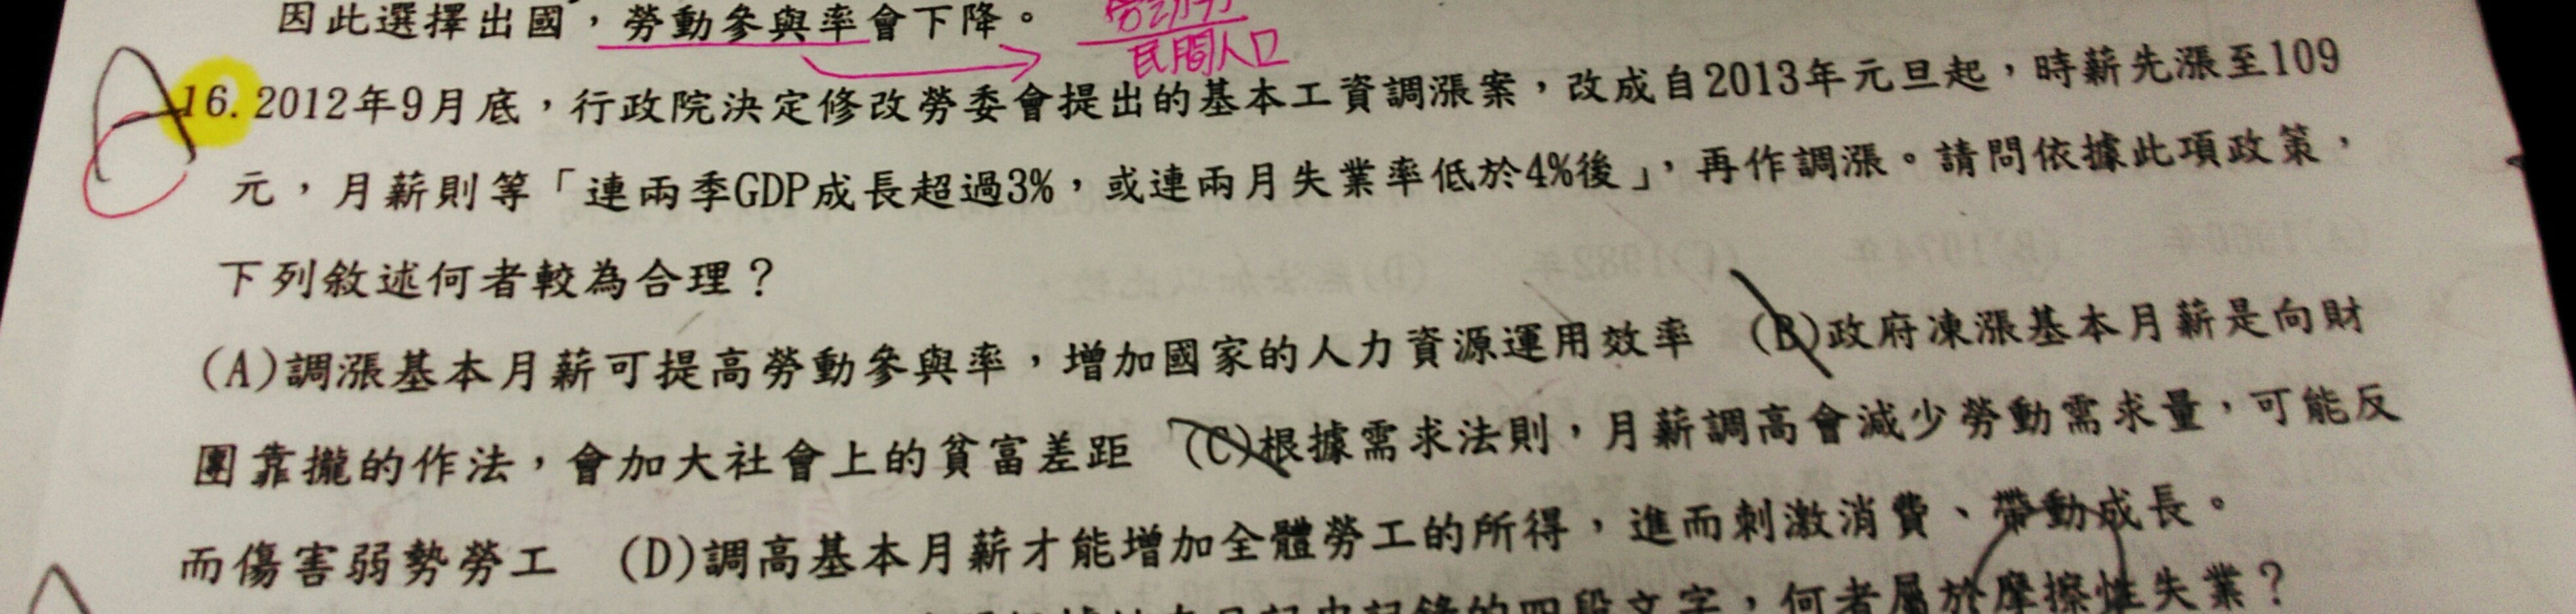 因此選擇出國，勞動參與率會下降。
勞動力
民間人口
16.2012年9月底，行政院決定修改勞委會提出的基本工資調漲案，改成自2013年元旦起，時薪先漲至109
元，月薪則等「連兩季GDP成長超過3%，或連兩月失業率低於4%後」，再作調漲。請問依據此項政策，
下列敘述何者較為合理？
(A)調漲基本月薪可提高勞動參與率，增加國家的人力資源運用效率 (B)政府凍漲基本月薪是向財
團靠攏的作法，會加大社會上的貧富差距 (C)根據需求法則，月薪調高會減少勞動需求量，可能反
而傷害弱勢勞工 (D)調高基本月薪才能增加全體勞工的所得，進而刺激消費、帶動成長。
的四段文字，何者屬於摩擦性失業？